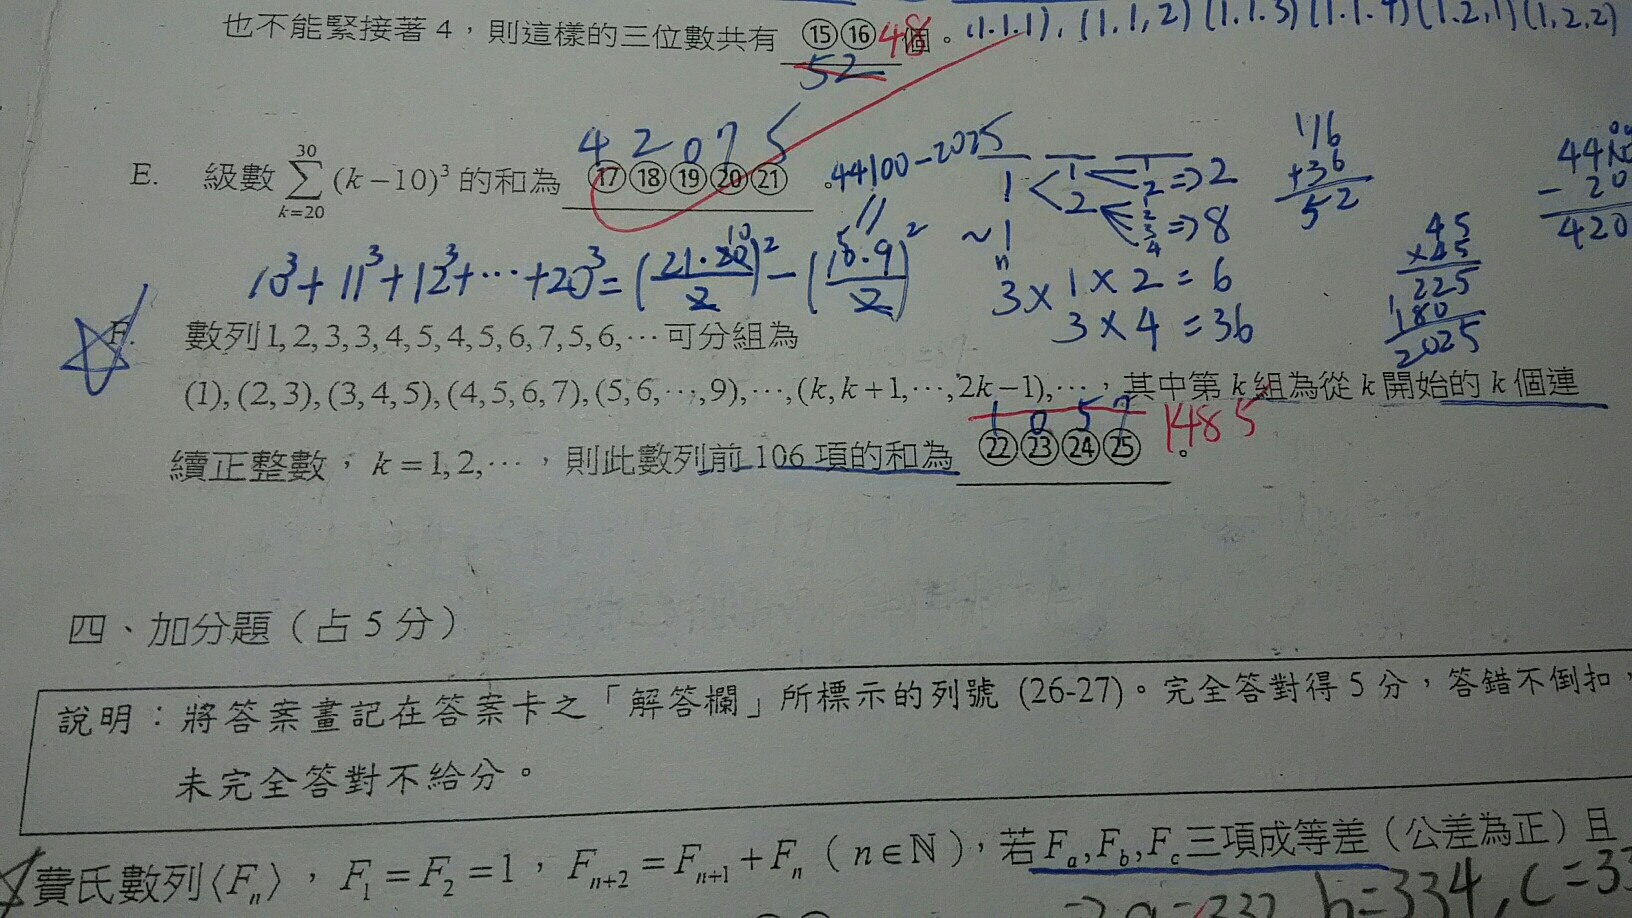 也不能緊接著 4，則這樣的三位數共有 ⑮⑯ 48 個。 (1.1.1), (1.1,2) (1.1.3) (1.1.4) (1.2,1) (1,2,2)
52
4 2 0 7 5
E. 級數 \sum_{k=20}^{30} (k−10)³ 的和為 ⑰⑱⑲⑳㉑ 。 44100−2025
1 < 1 < 1 2 ⇒ 2
2 < 1 2 3 4 ⇒ 8
116
+36
52
44100
− 20
420
10³+11³+12³+⋯+20³=(21·20/2)²−(10·9/2)²
10
5
~1
3×1×2=6
3×4=36
45
×45
225
180
2025
F. 數列 1, 2, 3, 3, 4, 5, 4, 5, 6, 7, 5, 6, ⋯ 可分組為
(1), (2, 3), (3, 4, 5), (4, 5, 6, 7), (5, 6, ⋯, 9), ⋯, (k, k+1, ⋯, 2k−1), ⋯，其中第 k 組為從 k 開始的 k 個連
1 0 5 7
續正整數，k=1, 2, ⋯，則此數列前 106 項的和為 ㉒㉓㉔㉕ 。 1485
四、加分題（占 5 分）
說明：將答案畫記在答案卡之「解答欄」所標示的列號 (26-27)。完全答對得 5 分，答錯不倒扣，
未完全答對不給分。
費氏數列⟨Fₙ⟩，F₁=F₂=1，Fₙ₊₂=Fₙ₊₁+Fₙ（n∈ℕ），若 F_a, F_b, F_c 三項成等差（公差為正）且
b=334, c=33